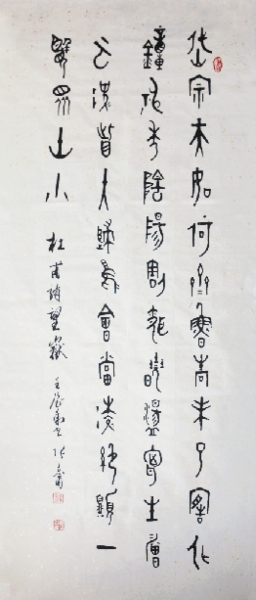 岱宗夫如何齊魯青未了造化
鐘神秀陰陽割昏曉盪胸生層
云決眥入歸鳥會當凌絕頂一
覽眾山小 杜甫詩望嶽